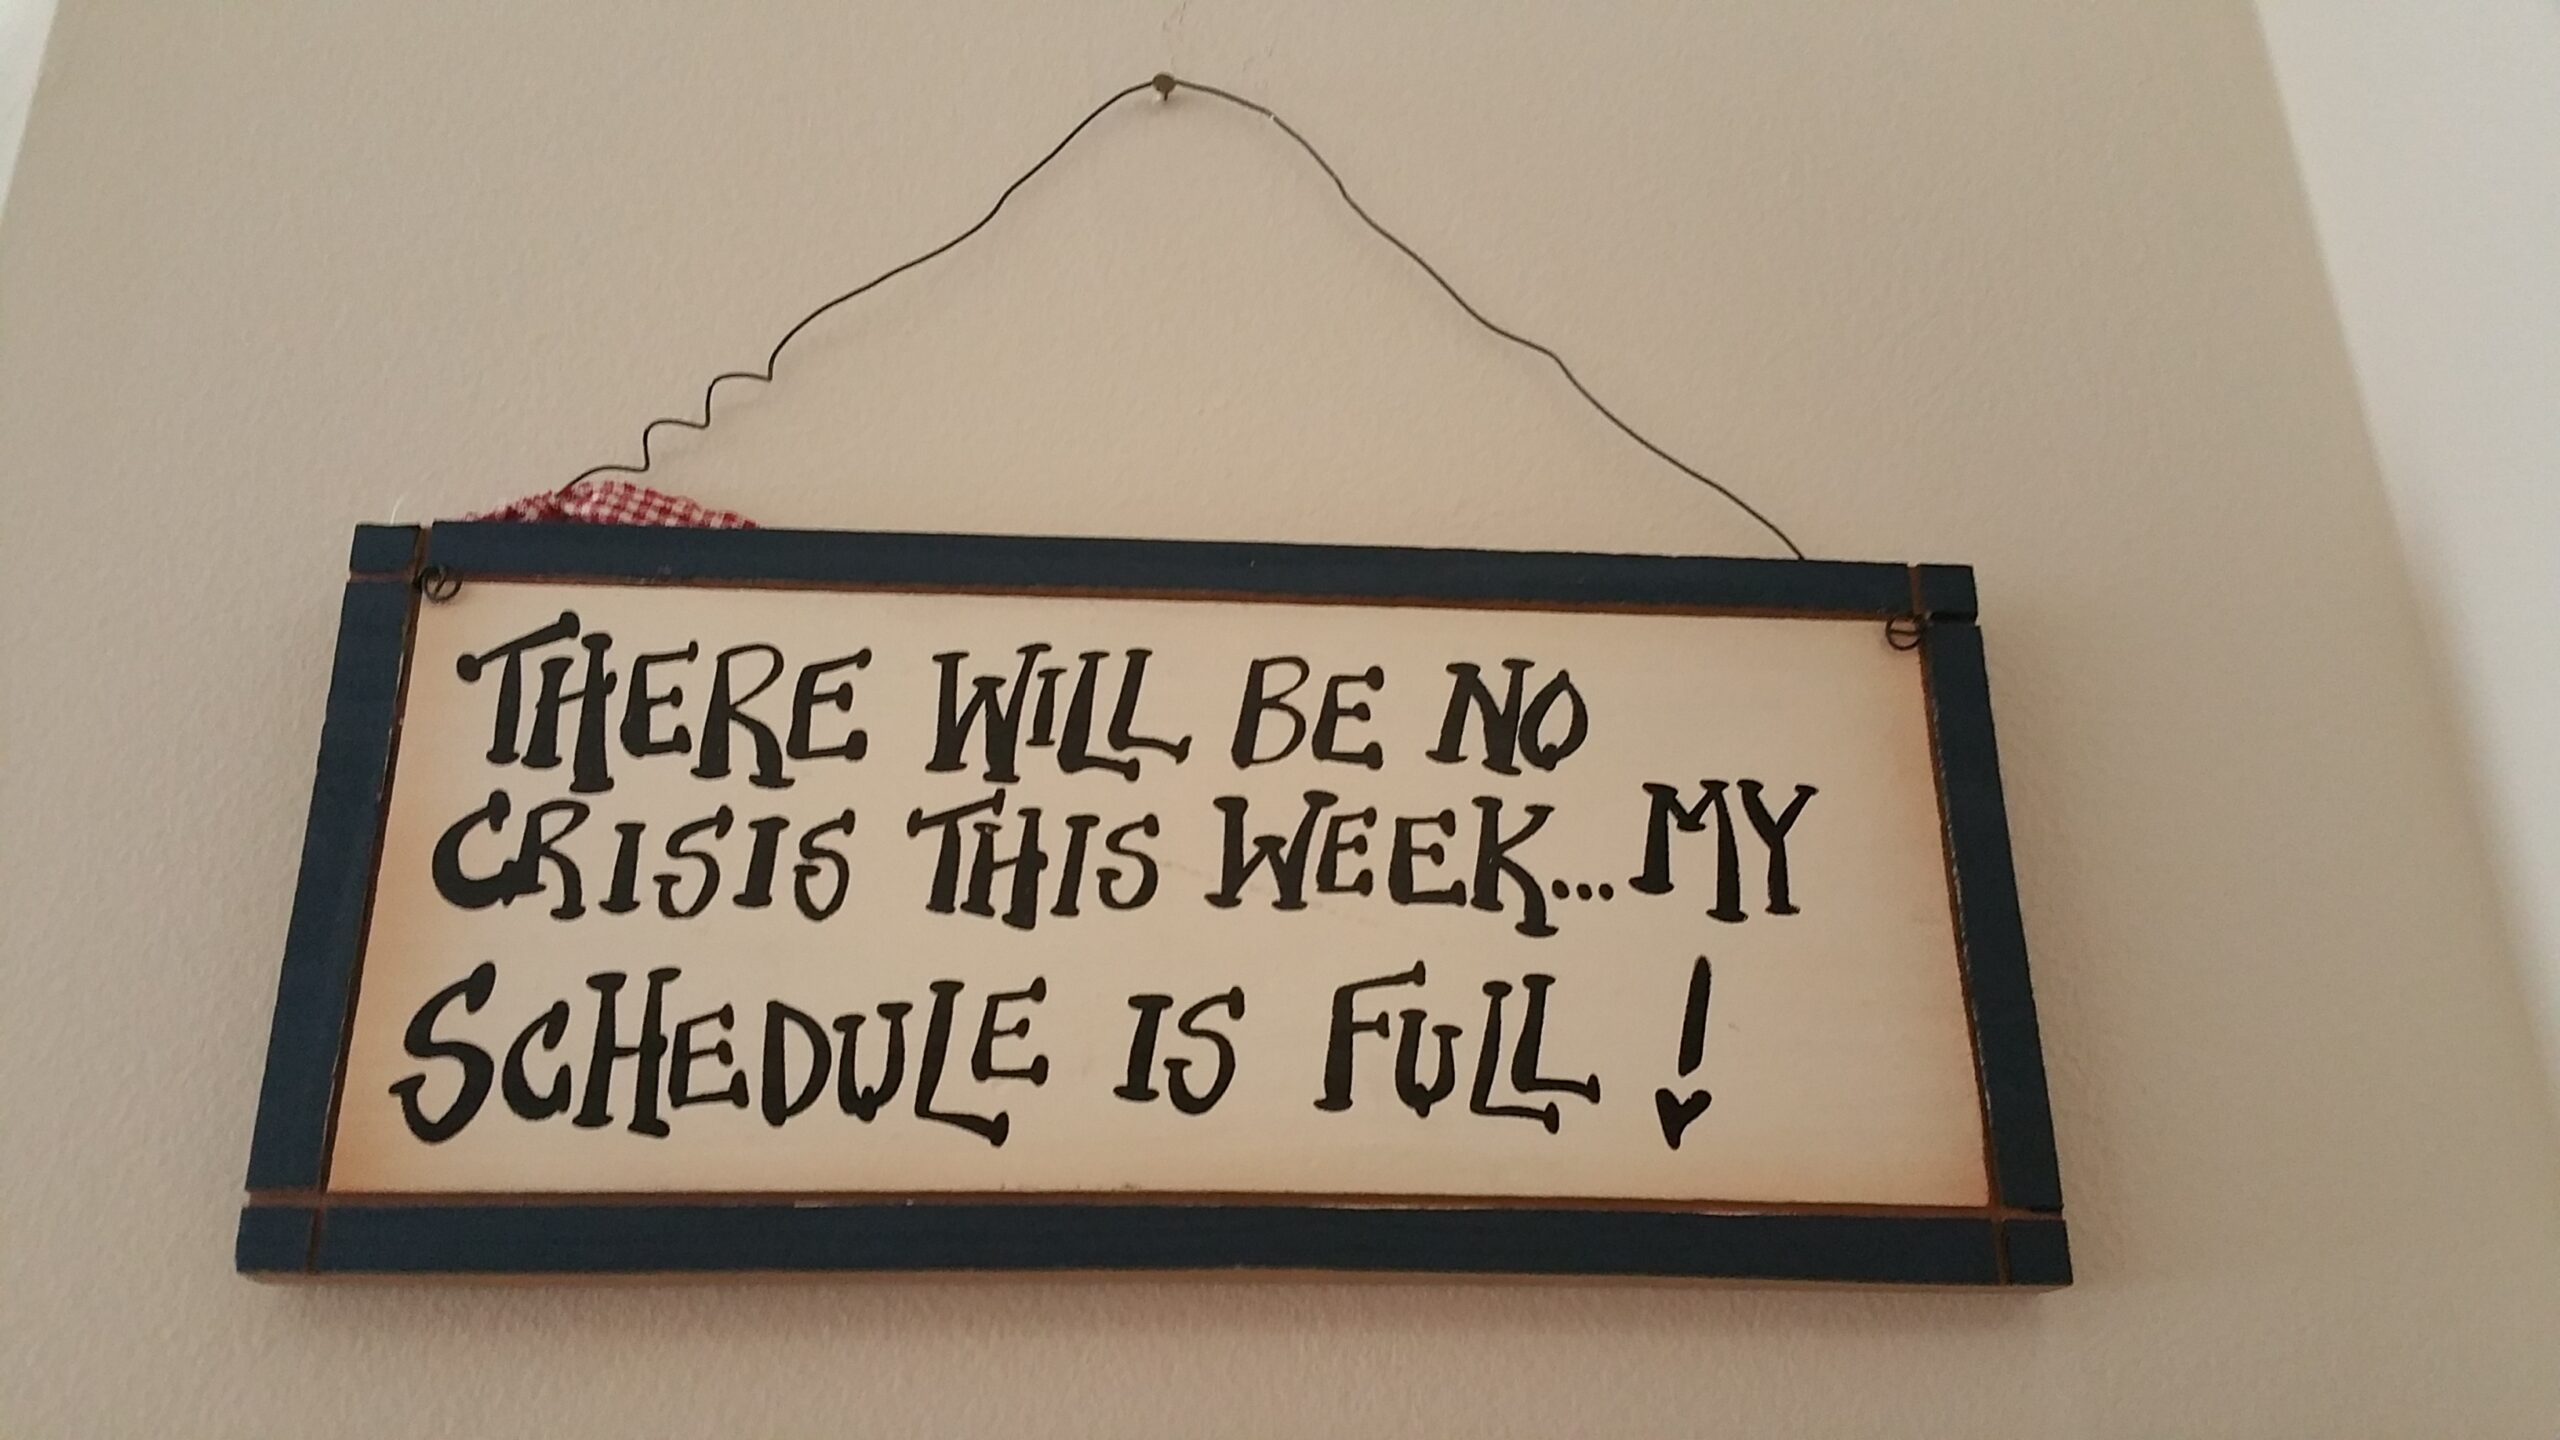 THERE WILL BE NO
CRISIS THIS WEEK... MY
SCHEDULE IS FULL !